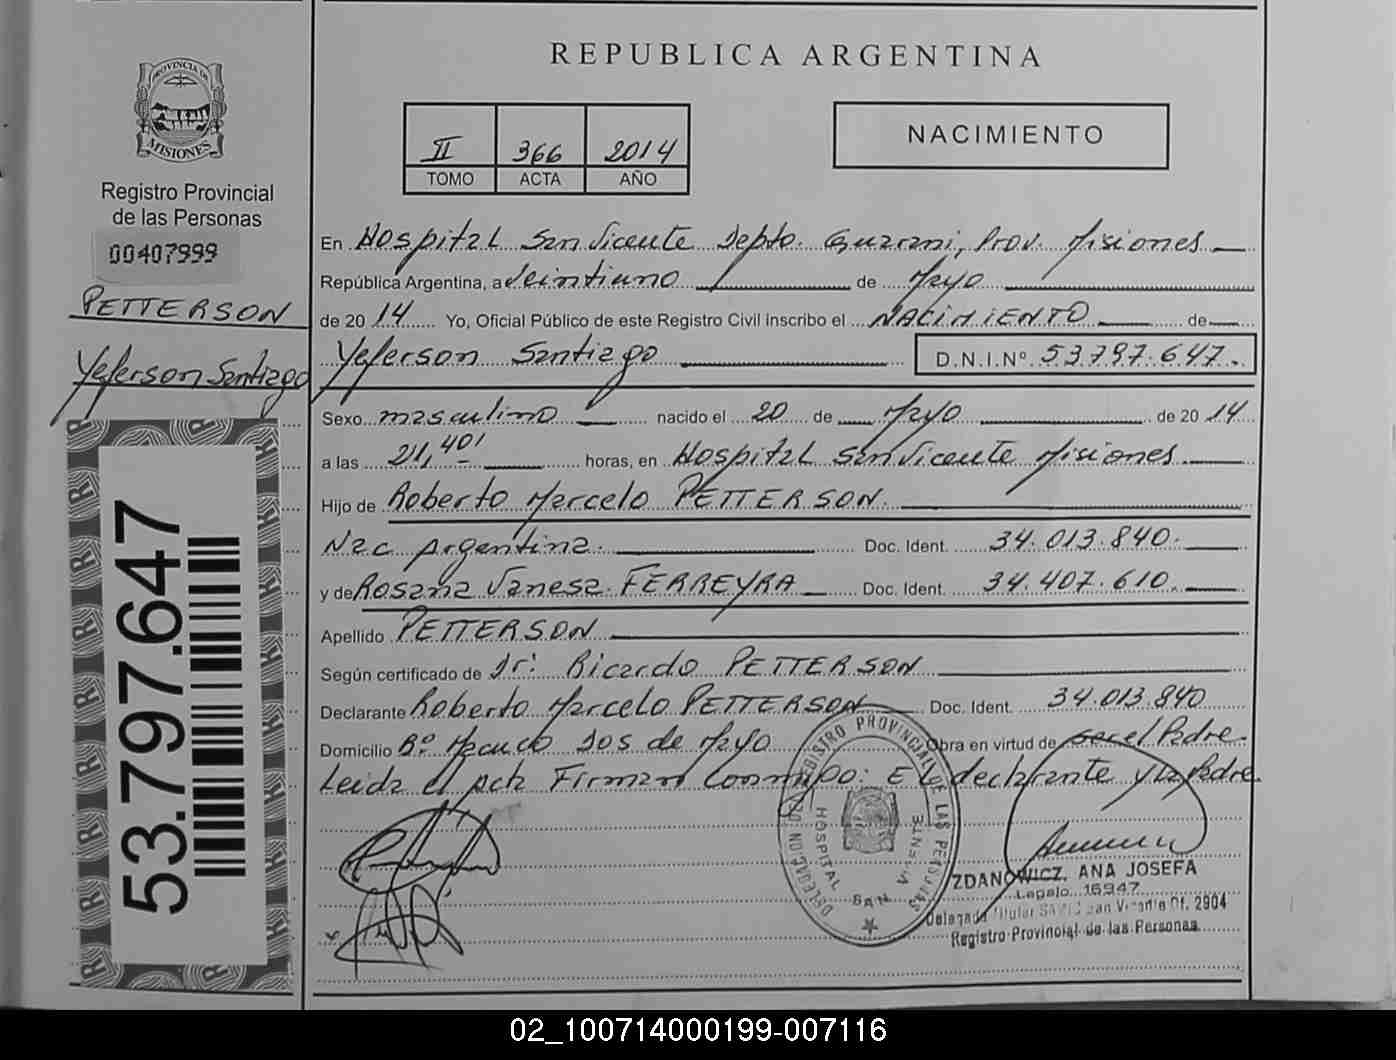 PROVINCIA DE
MISIONES
Registro Provincial
de las Personas
00407999
PETTERSON
Yeferson Santiago
53.797.647
REPUBLICA ARGENTINA
II 366 2014
TOMO ACTA AÑO
NACIMIENTO
En Hospital San Vicente Depto. Guarani, Prov. Misiones
República Argentina, a veintiuno de Mayo
de 20 14 Yo, Oficial Público de este Registro Civil inscribo el NACIMIENTO de
Yeferson Santiago D.N.I.Nº 53.797.647.
Sexo masculino nacido el 20 de Mayo de 20 14
a las 21,40' horas, en Hospital San Vicente Misiones
Hijo de Roberto Marcelo PETTERSON
Nac Argentina. Doc. Ident. 34.013.840.
y de Rosana Vanesa FERREYRA Doc. Ident. 34.407.610.
Apellido PETTERSON
Según certificado de Dr: Ricardo PETTERSON
Declarante Roberto Marcelo PETTERSON Doc. Ident. 34.013.840
Domicilio Bº Macuco Dos de Mayo Obra en virtud de ser el Padre.
Leida el acta Firman Conmigo: El declarante y la Padre
DELEGACION DEL REGISTRO PROVINCIAL DE LAS PERSONAS
HOSPITAL SAN VICENTE
ZDANOWICZ, ANA JOSEFA
Legajo 16947
Delegada Titular San Vicente Of. 2904
Registro Provincial de las Personas
02_100714000199-007116